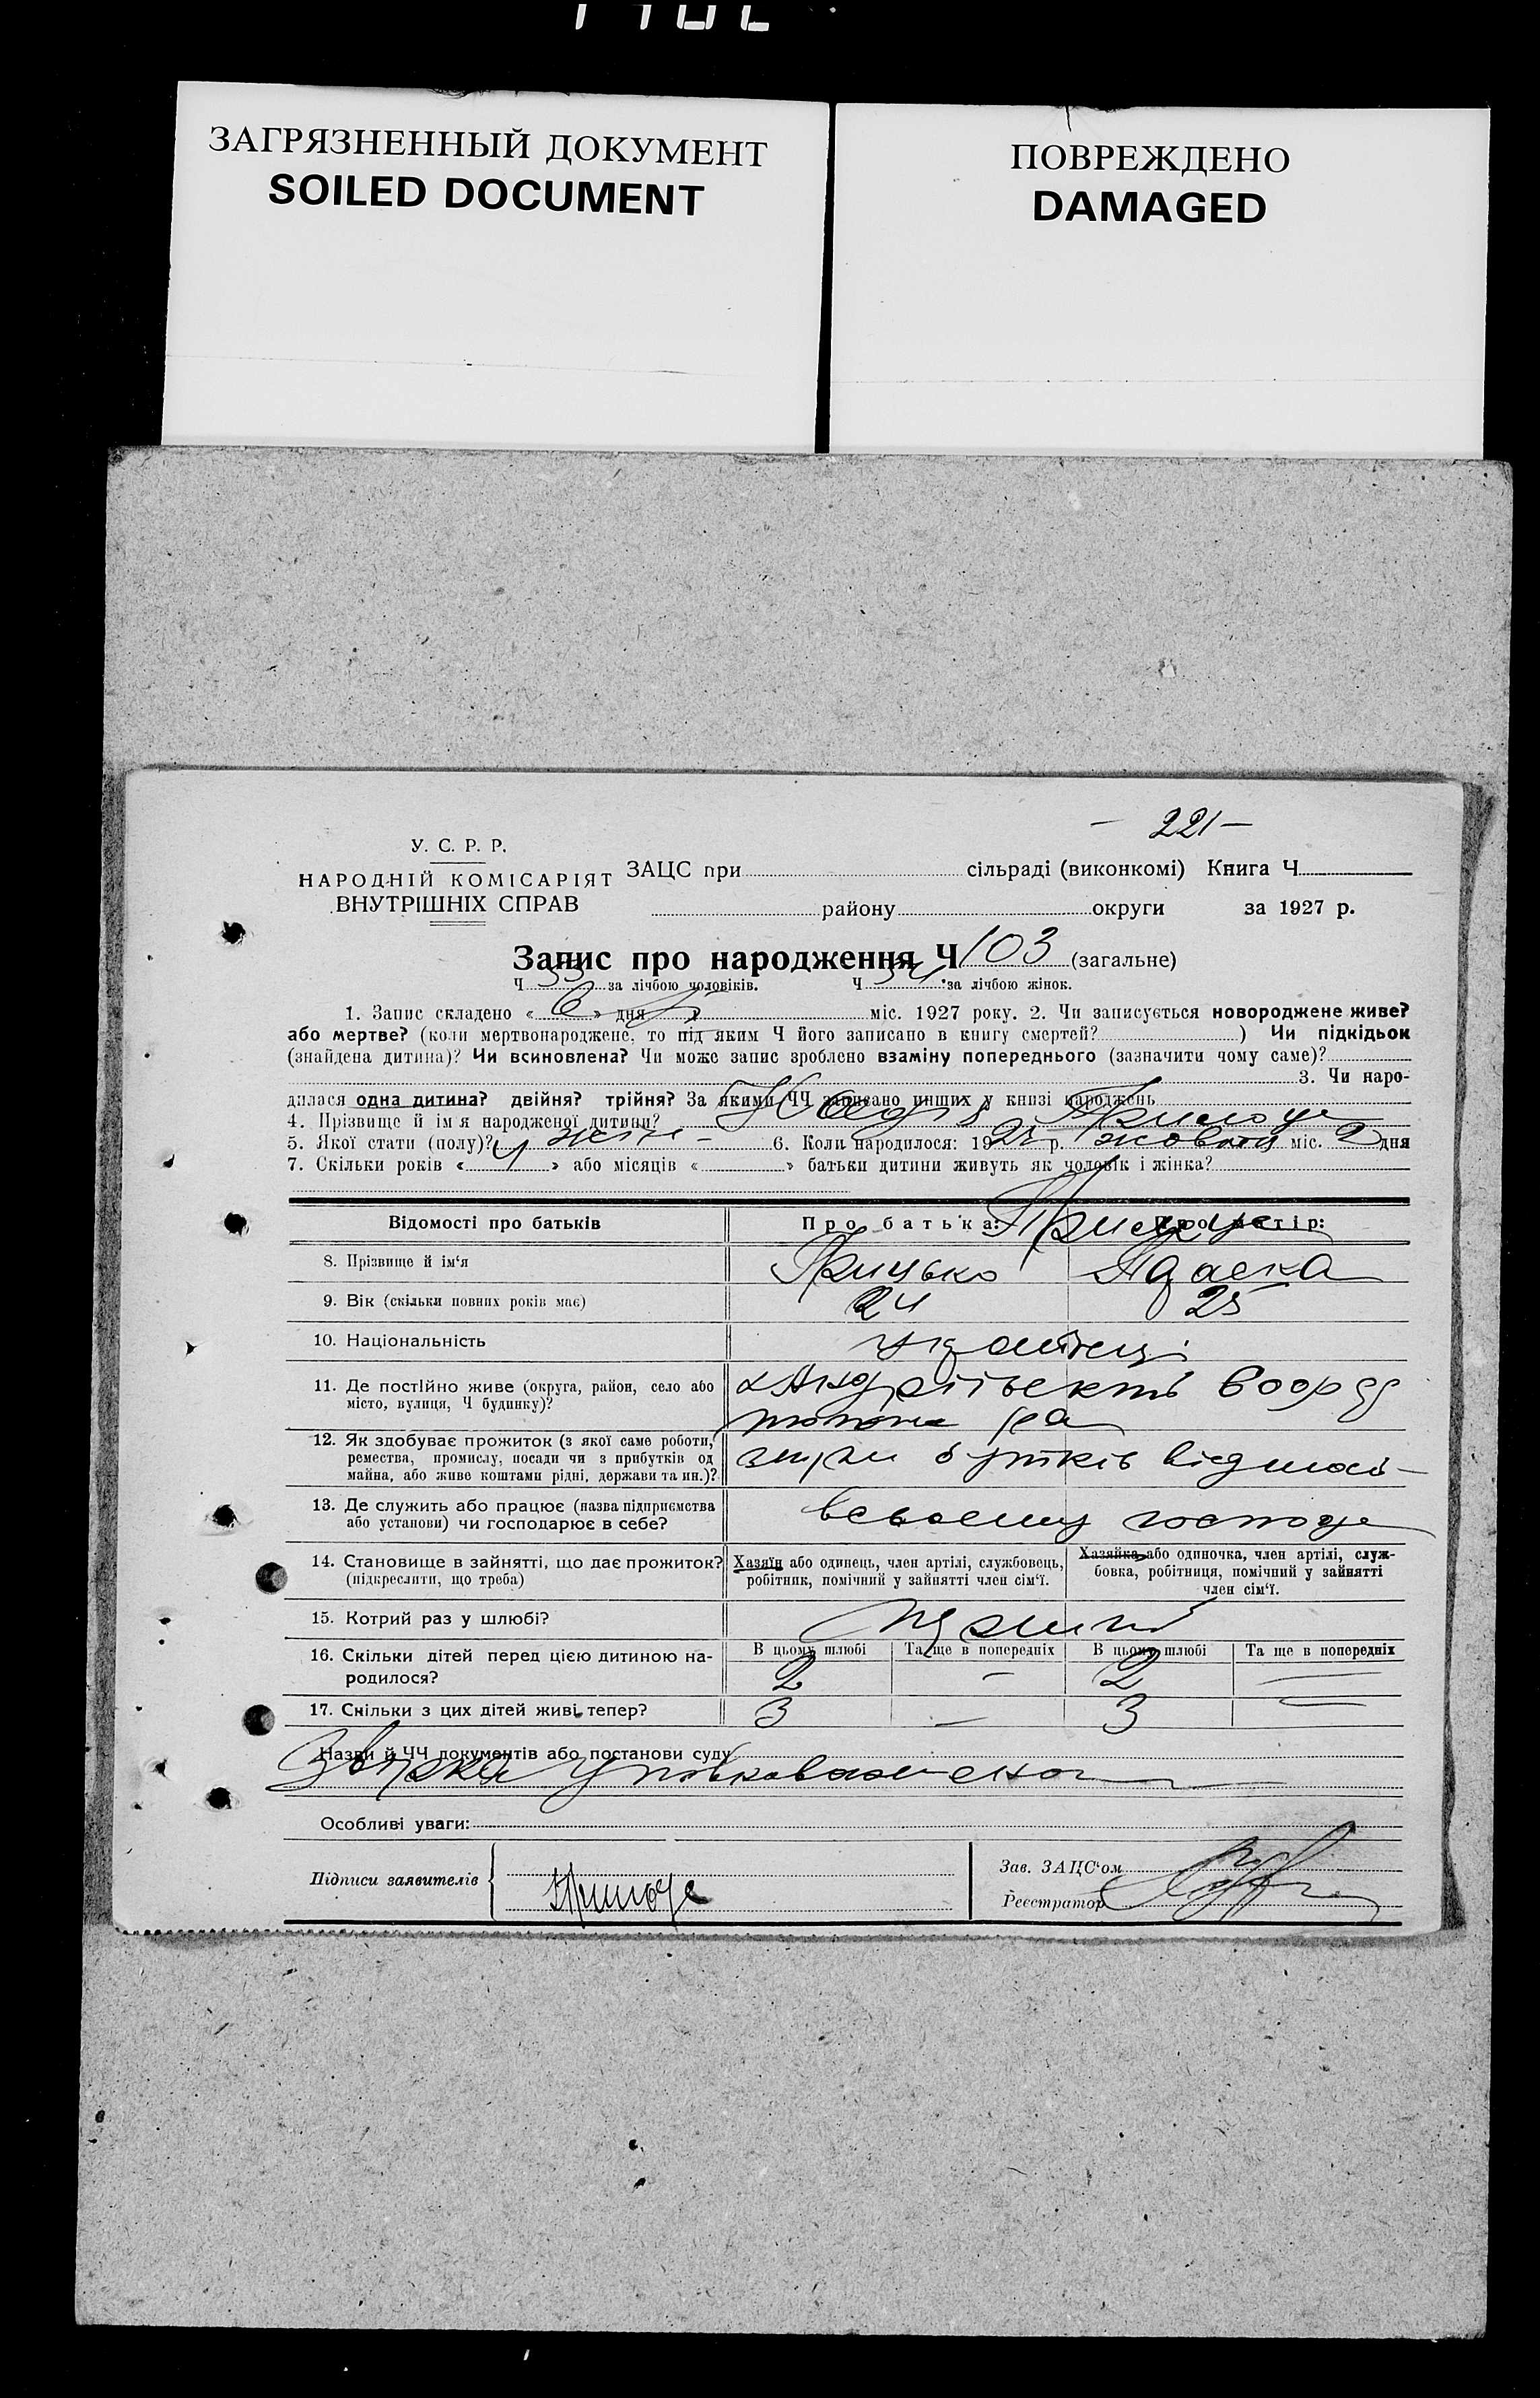 ЗАГРЯЗНЕННЫЙ ДОКУМЕНТ
SOILED DOCUMENT
ПОВРЕЖДЕНО
DAMAGED
— 221 —
У. С. Р. Р.
НАРОДНІЙ КОМІСАРІЯТ
ВНУТРІШНІХ СПРАВ
ЗАЦС при сільраді (виконкомі) Книга Ч
району округи за 1927 р.
Запис про народження Ч 103 (загальне)
Ч 53 за лічбою чоловіків. Ч за лічбою жінок.
1. Запис складено « 6 » дня міс. 1927 року. 2. Чи записується новороджене живе?
або мертве? (коли мертвонароджене, то під яким Ч його записано в книгу смертей? ) Чи підкідьок
(знайдена дитина)? Чи всиновлена? Чи може запис зроблено взаміну попереднього (зазначити чому саме)?
3. Чи наро-
дилася одна дитина? двійня? трійня? За якими ЧЧ записано инших у книзі народжень
4. Прізвище й ім'я народженої дитини? Надія
5. Якої стати (полу)? жін — 6. Коли народилося: 1927 р. жовтня міс. 2 дня
7. Скільки років « » або місяців « » батьки дитини живуть як чоловік і жінка?
Відомості про батьків
Про батька:
Про матір:
8. Прізвище й ім'я
Грицько
Параска
9. Вік (скільки повних років має)
24
25
10. Національність
українці
11. Де постійно живе (округа, район, село або
місто, вулиця, Ч будинку)?
12. Як здобуває прожиток (з якої саме роботи,
ремества, промислу, посади чи з прибутків од
майна, або живе коштами рідні, держави та ин.)?
13. Де служить або працює (назва підприємства
або установи) чи господарює в себе?
всвоему господа
14. Становище в зайнятті, що дає прожиток?
(підкреслити, що треба)
Хазяїн або одинець, член артілі, службовець,
робітник, помічний у зайнятті член сім'ї.
Хазяйка або одиночка, член артілі, служ-
бовка, робітниця, помічний у зайнятті
член сім'ї.
15. Котрий раз у шлюбі?
перший
16. Скільки дітей перед цією дитиною на-
родилося?
В цьому шлюбі
Та ще в попередніх
В цьому шлюбі
Та ще в попередніх
2 — 2 —
17. Скільки з цих дітей живі тепер?
3 — 3 —
Назви й ЧЧ документів або постанови суду
Особливі уваги:
Підписи заявителів
Зав. ЗАЦС'ом
Реєстратор